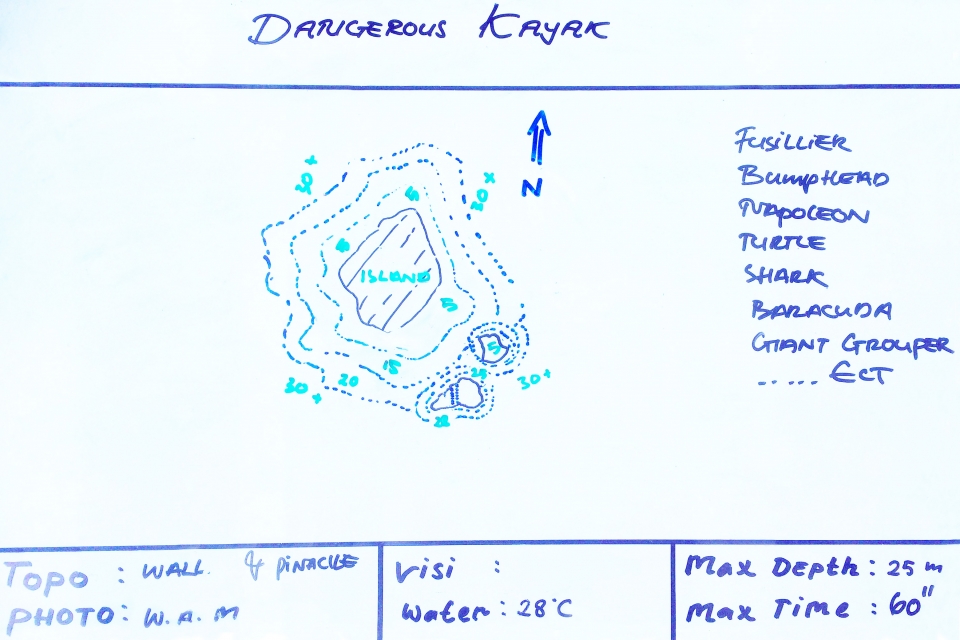 DANGEROUS KAYAK
N
30+
30+
5
5
ISLAND
5
5
15
25
20
30+
30+
FUSILLIER
BUMPHEAD
NAPOLEON
TURTLE
SHARK
BARACUDA
GIANT GROUPER
...... ECT
TOPO : WALL. & PINACLE
PHOTO: W.A.M
Visi :
Water : 28°C
Max Depth : 25 m
Max Time : 60"